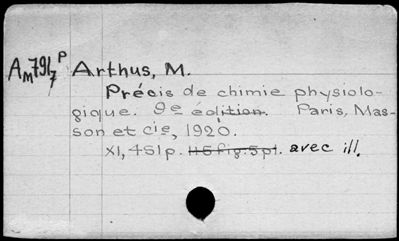 AM791/7 P Arthus, M.
Précis de chimie physiolo-
gique. 9e édition. Paris, Mas-
son et cie, 1920.
XI, 451p. 115 fig. 5 pl. avec ill.